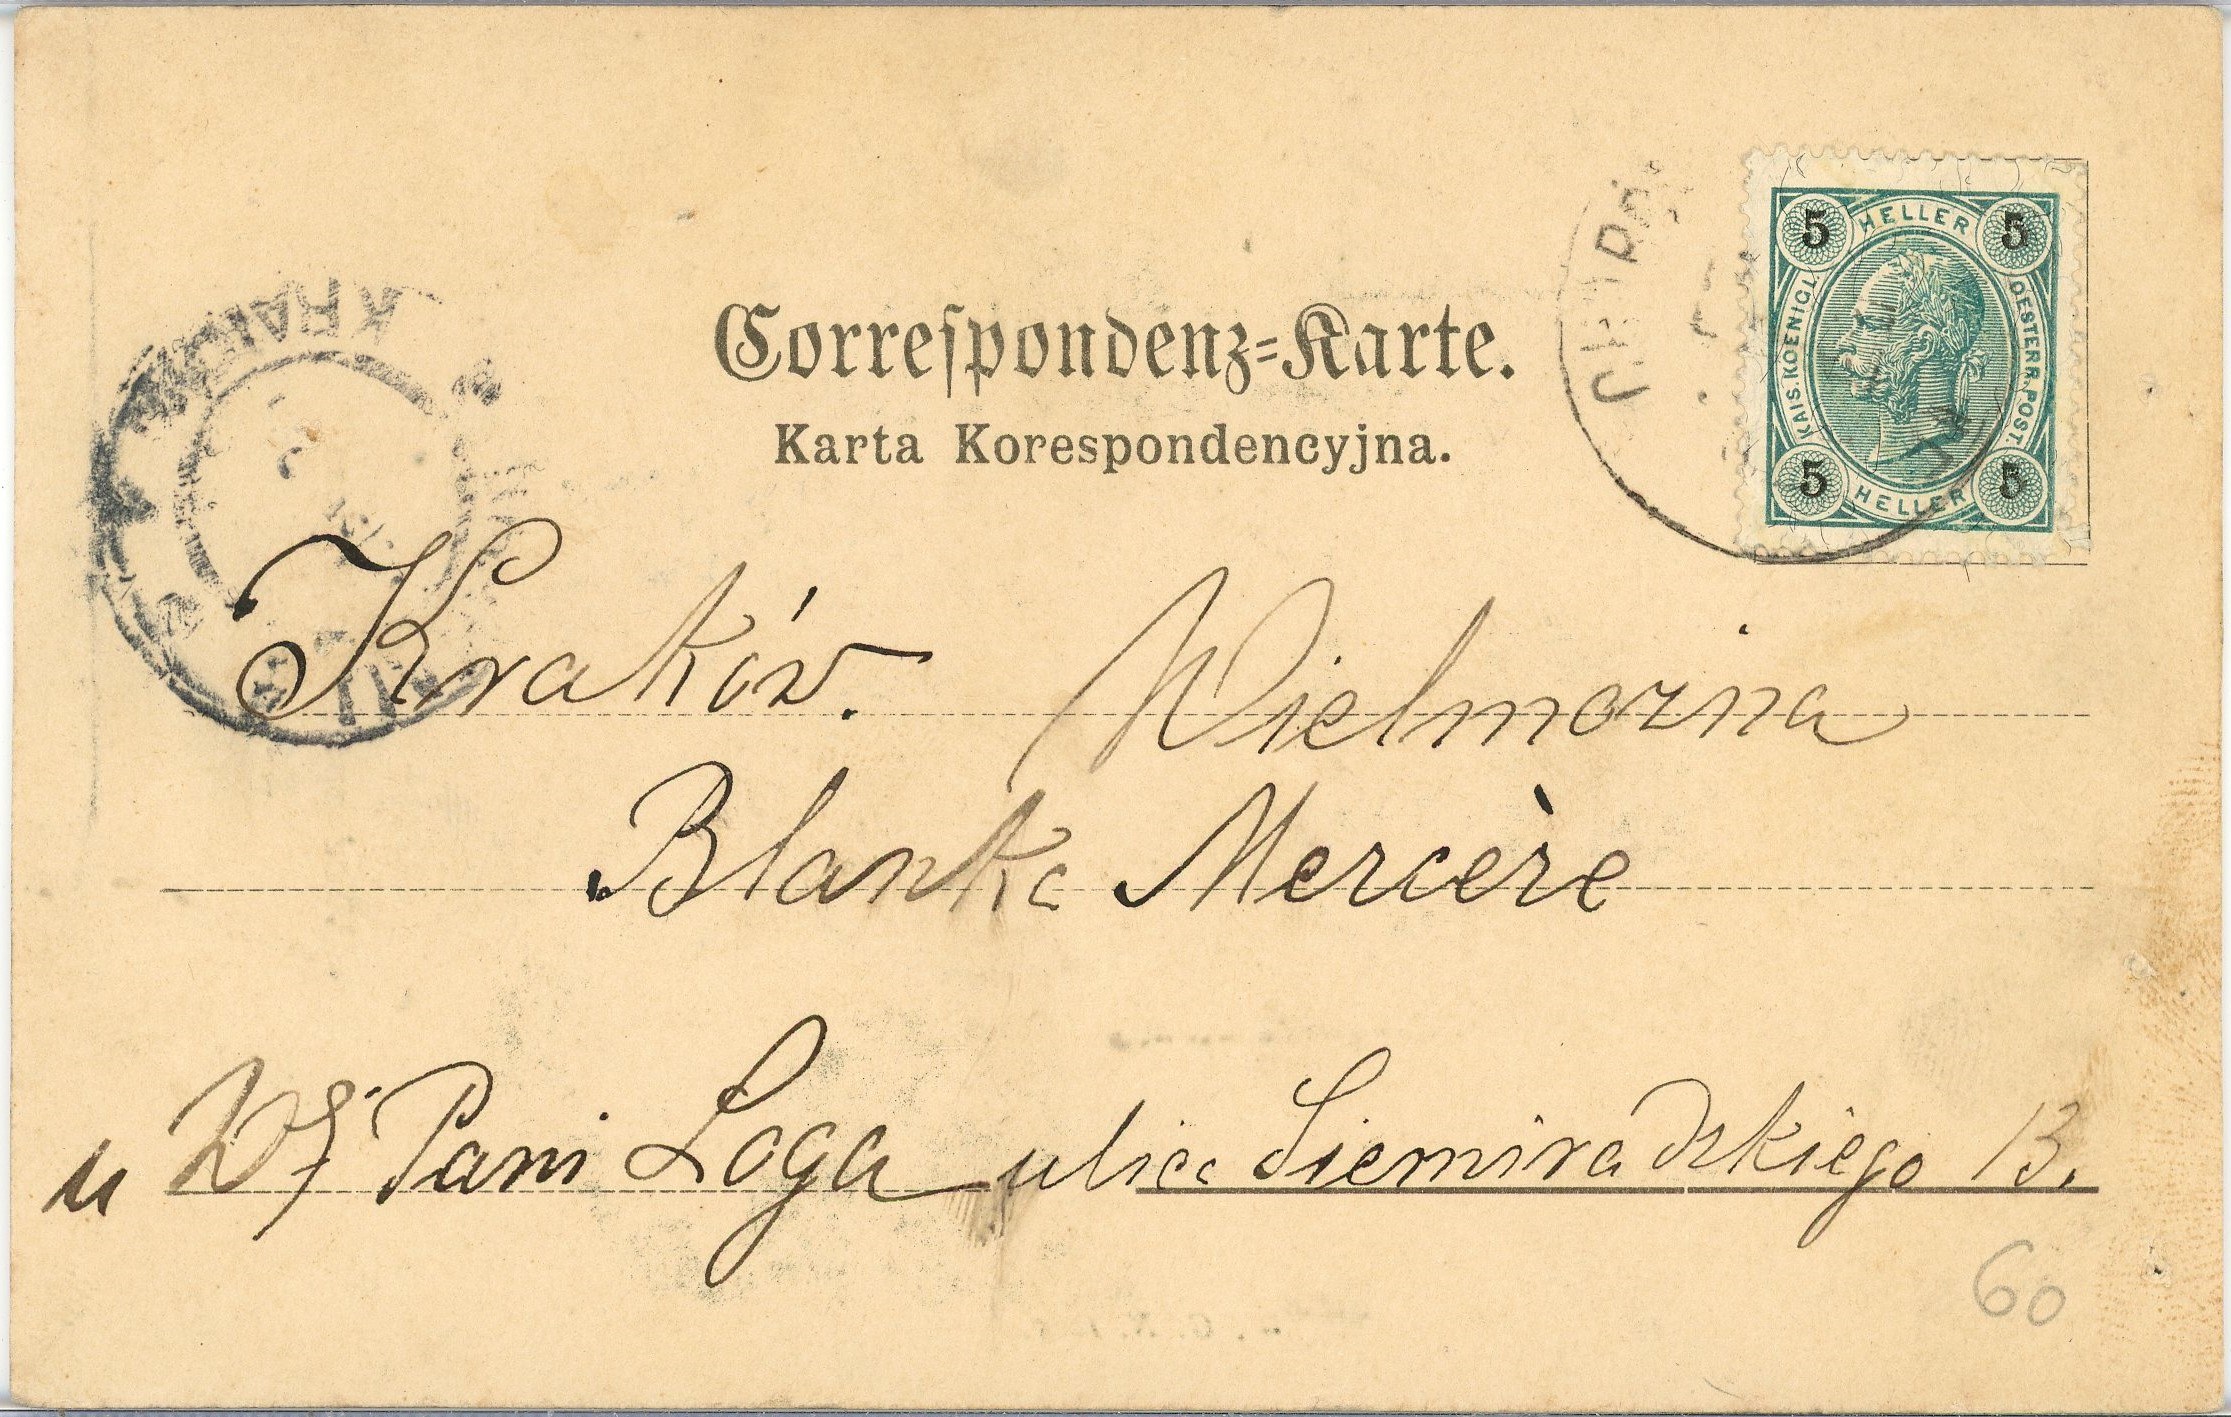 Correspondenz=Karte.
Karta Korespondencyjna.
5 HELLER 5
KAIS. KOENIGL.
OESTERR. POST.
5 HELLER 5
KRAKÓW
Kraków. Wielmożna
Blanka Mercère
u Pani Loga ulica Siemiradzkiego 13.
60